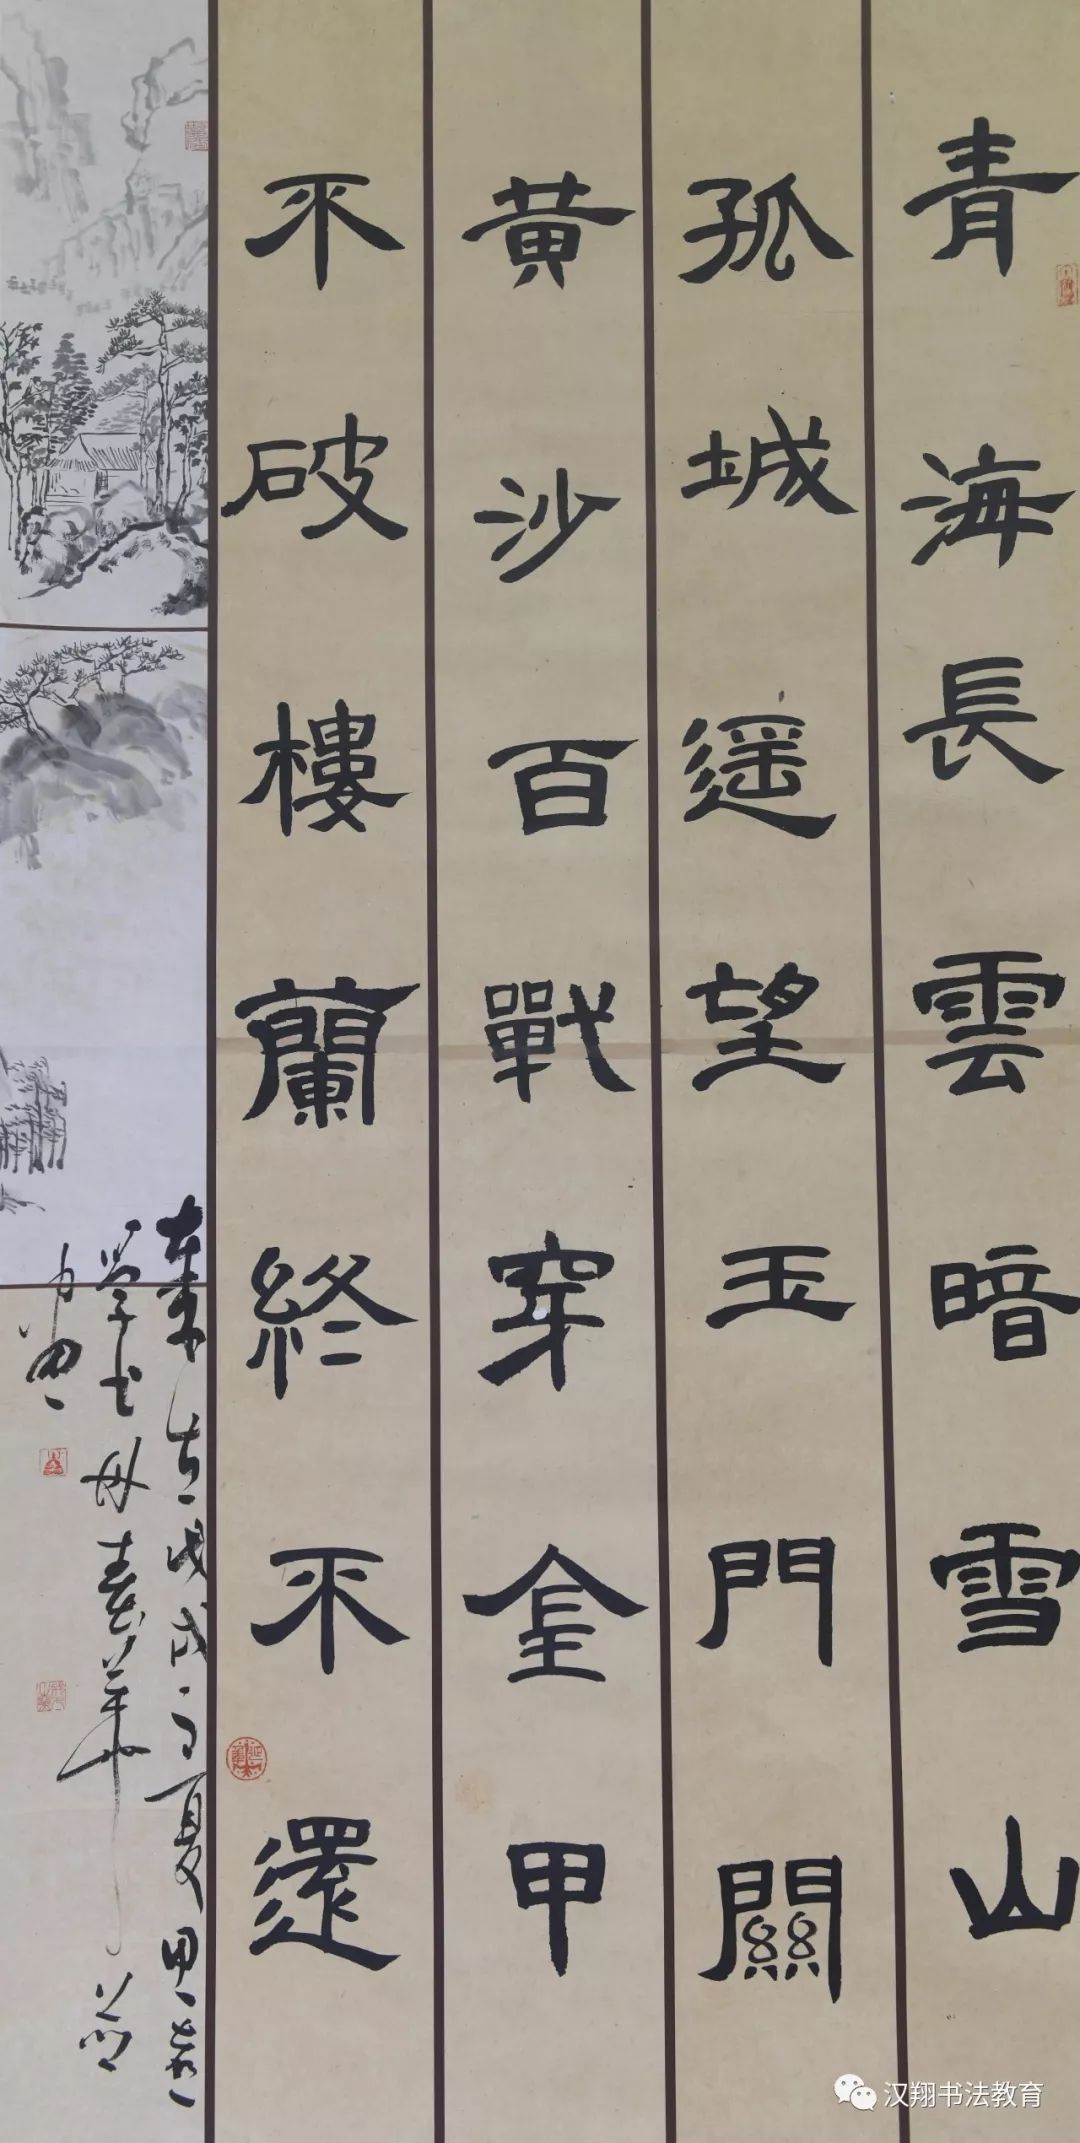 青海長雲暗雪山
孤城遥望玉門關
黄沙百戰穿金甲
不破樓蘭終不還
戊戌之夏
汉翔书法教育